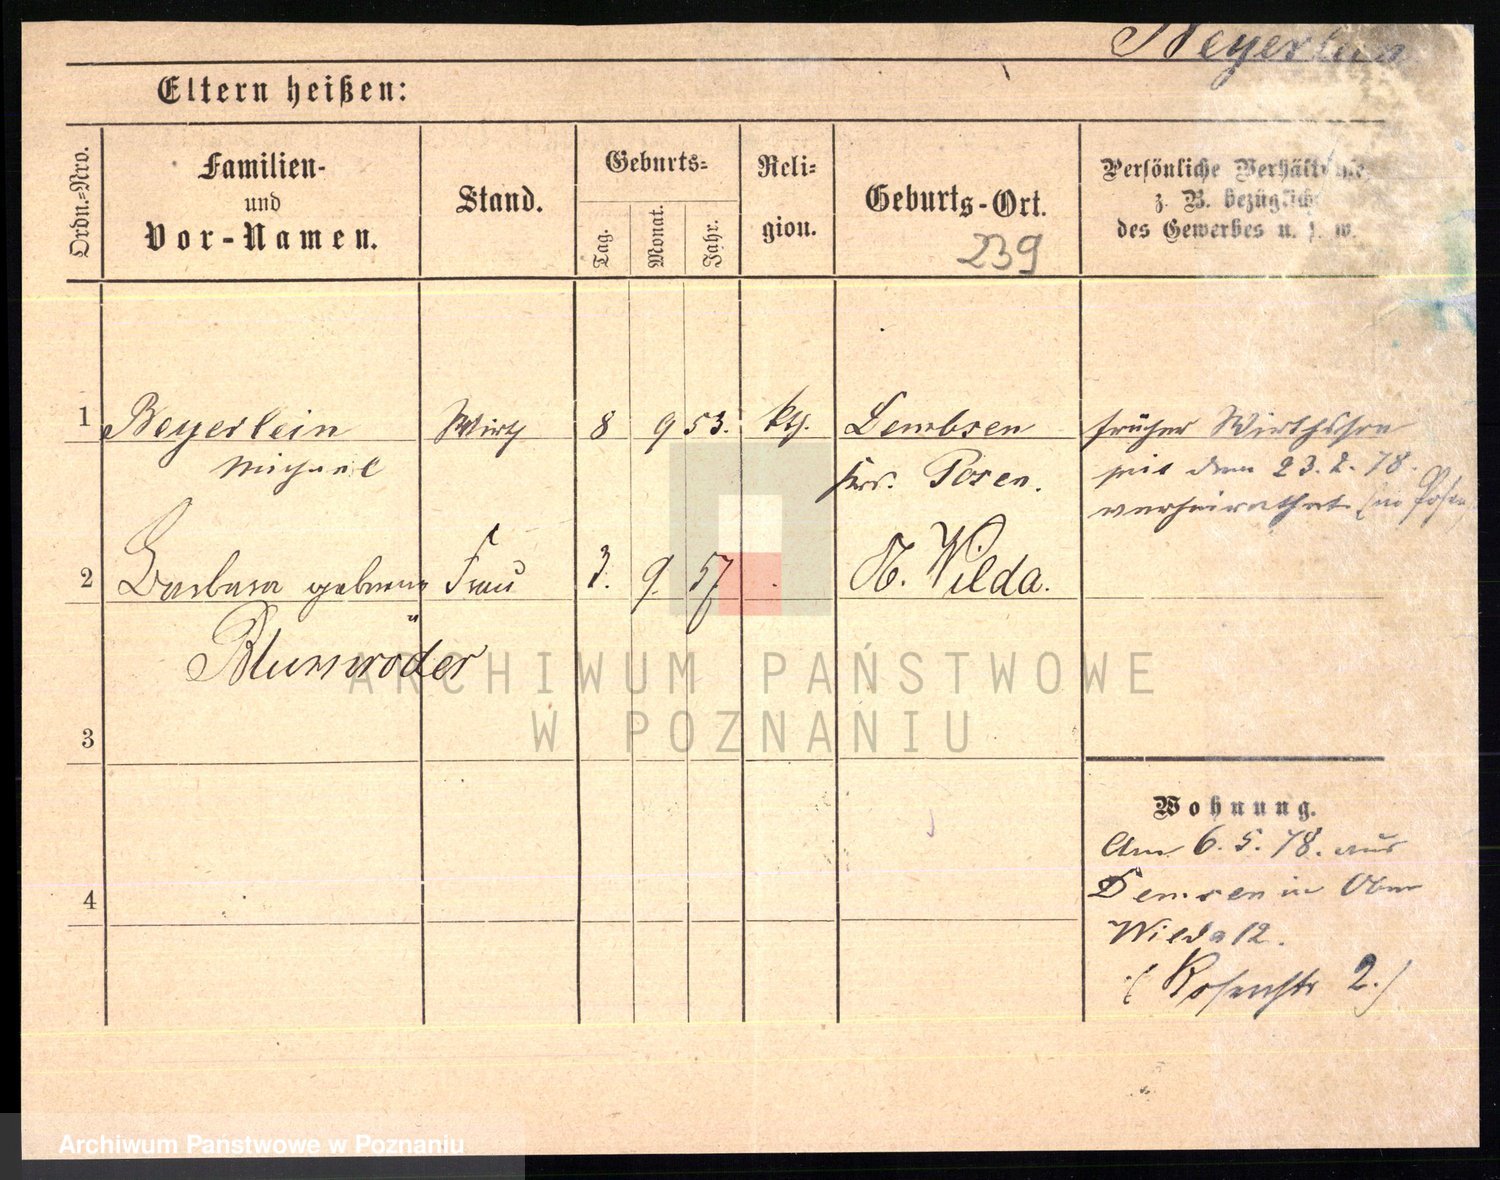 Beyerlein
Eltern heißen:
Ordn.=Nro.
Familien-
und
Vor-Namen.
Stand.
Geburts=
Tag.
Monat.
Jahr.
Reli=
gion.
Geburts-Ort.
239
Persönliche Verhältnisse
z. B. bezüglich
des Gewerbes u. s. w.
1 Beyerlein Wirth 8 9 53. kth. Lembsen früher Wirthssohn
Michael Krs. Posen. seit dem 23. 2. 78.
verheirathet (in Posen)
2 Barbara geborene Frau 3. 9. 57 O. Wilda.
Blumröder
3
4
Wohnung.
Am 6. 5. 78. aus
Demsen in Ober
Wilda 12.
(Rosenstr 2.)
ARCHIWUM PAŃSTWOWE
W POZNANIU
Archiwum Państwowe w Poznaniu